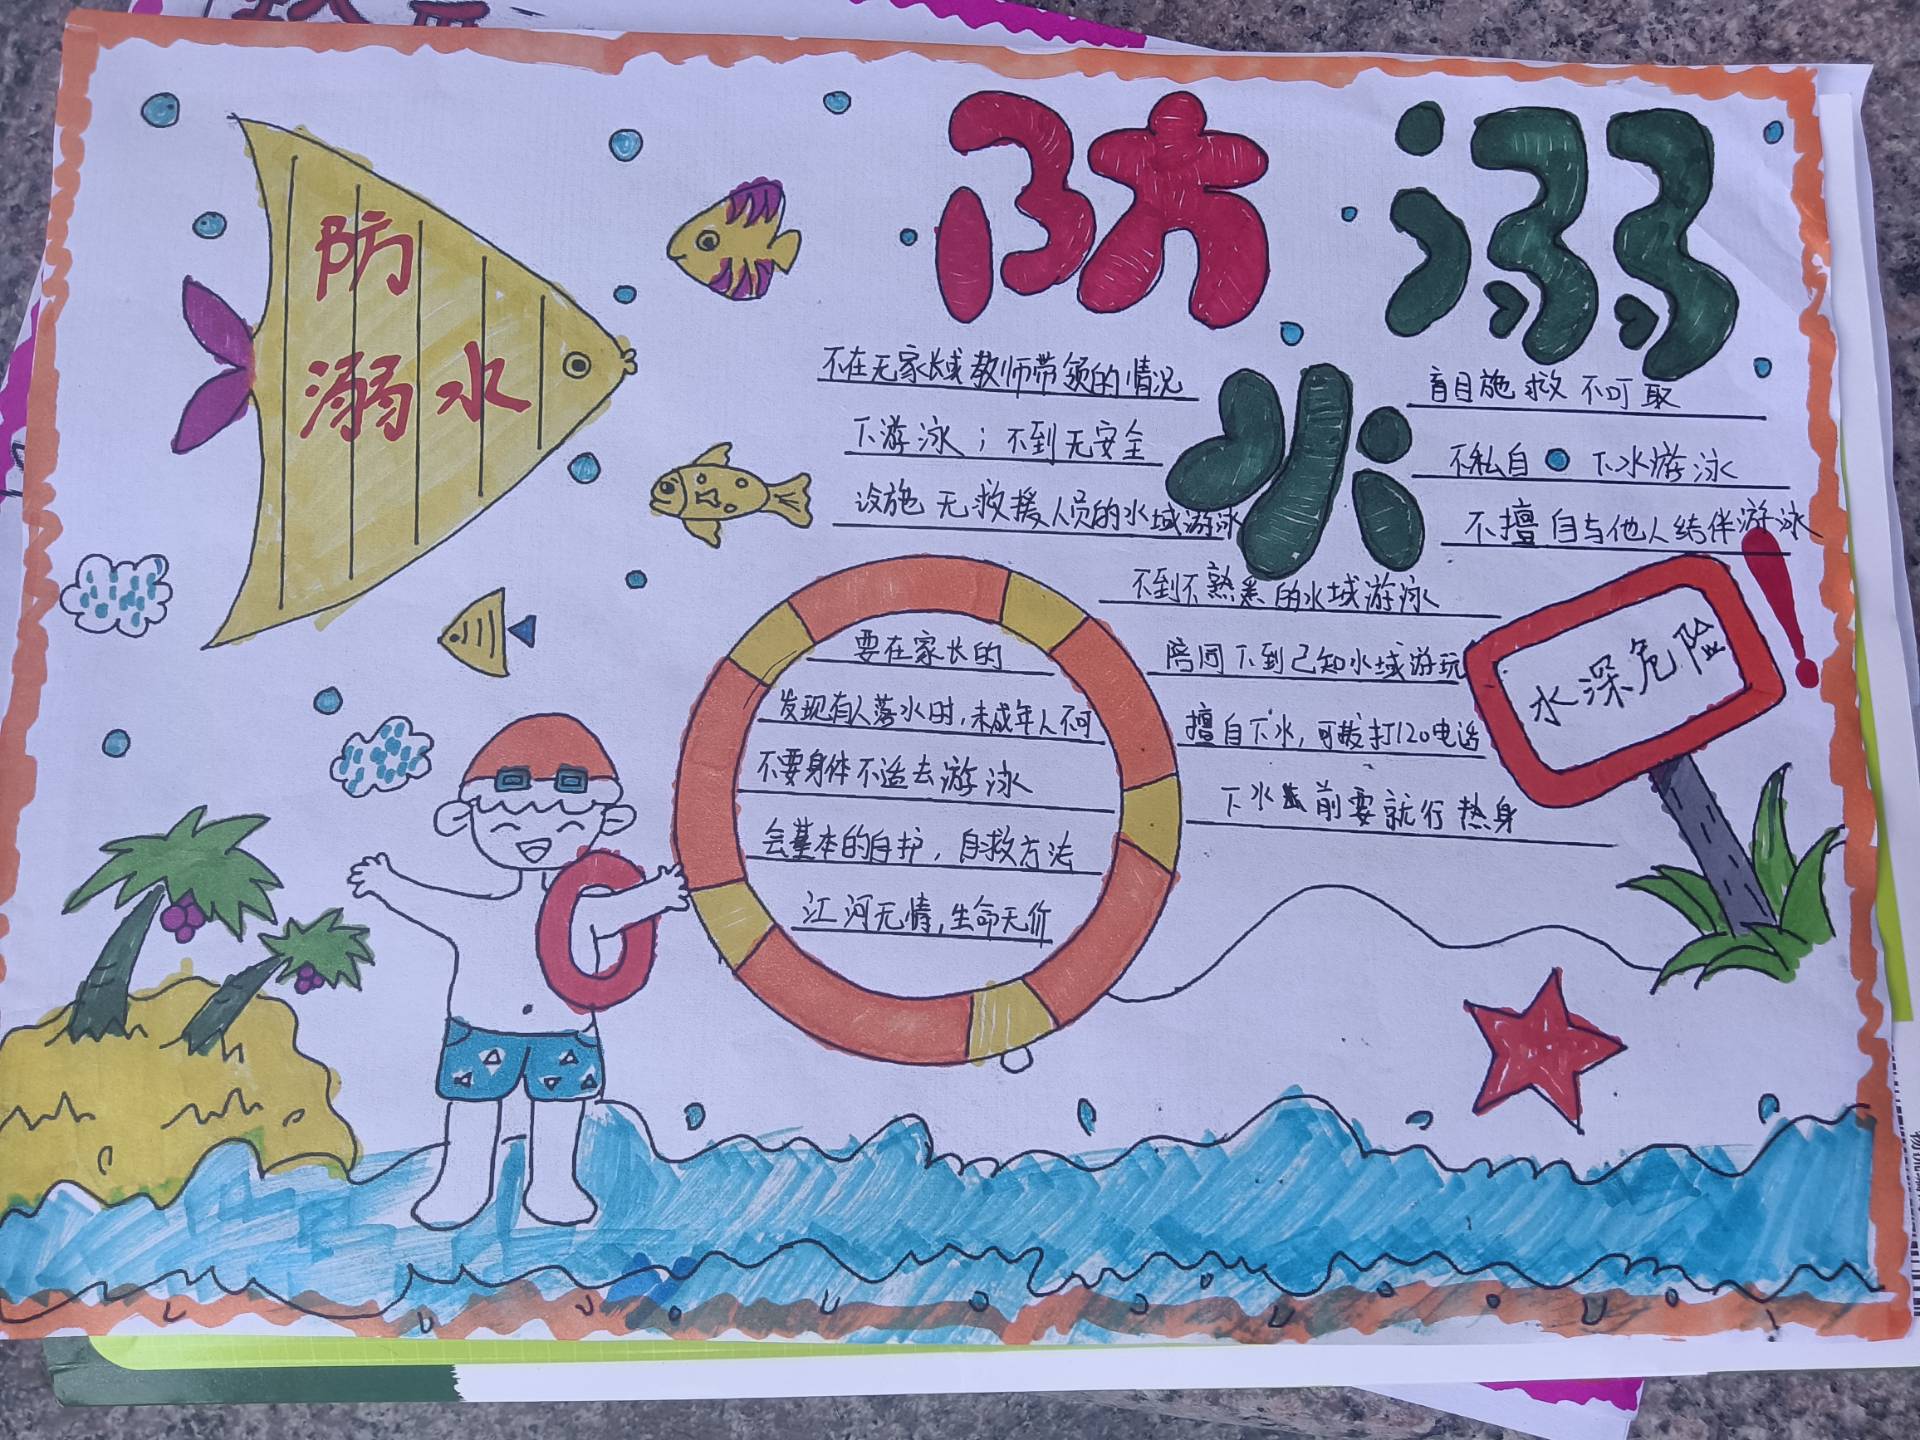 防溺
水
防
溺水
不在无家长或教师带领的情况
下游泳；不到无安全
设施无救援人员的水域游泳
盲目施救不可取
不私自下水游泳
不擅自与他人结伴游泳
不到不熟悉的水域游泳
陪同下到已知水域游玩
擅自下水，可拨打120电话
下水前要就行热身
要在家长的
发现有人落水时，未成年人不可
不要身体不适去游泳
会基本的自护，自救方法
江河无情，生命无价
水深危险
！